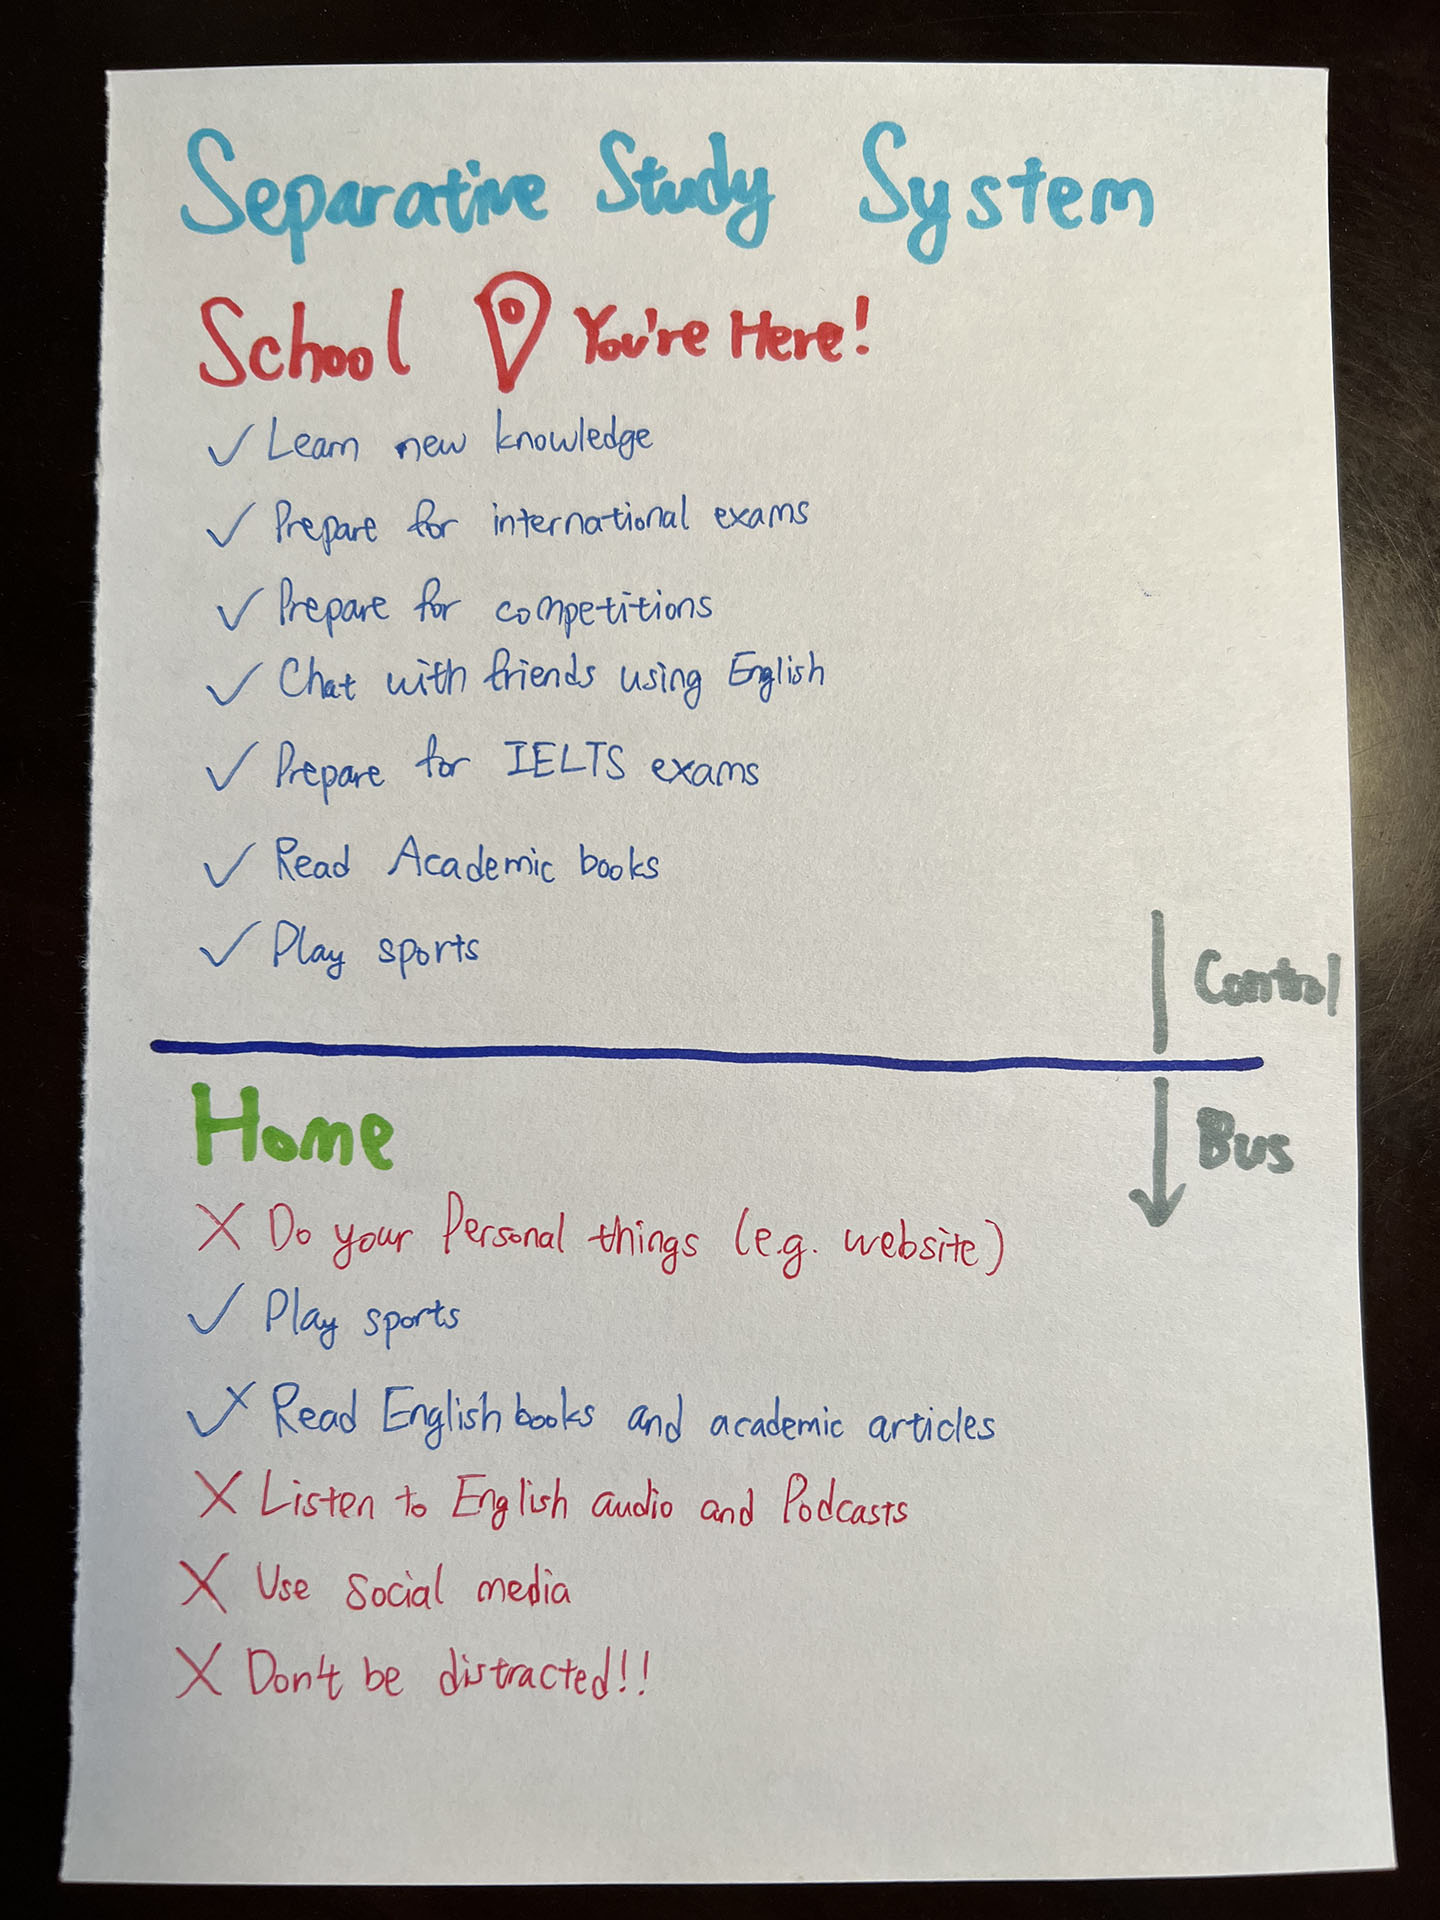 Separative Study System
School You're Here!
✓ Learn new knowledge
✓ Prepare for international exams
✓ Prepare for competitions
✓ Chat with friends using English
✓ Prepare for IELTS exams
✓ Read Academic books
✓ Play sports
Control
Home
Bus
X Do your Personal things (e.g. website)
✓ Play sports
✓x Read English books and academic articles
X Listen to English audio and Podcasts
X Use social media
X Don't be distracted!!